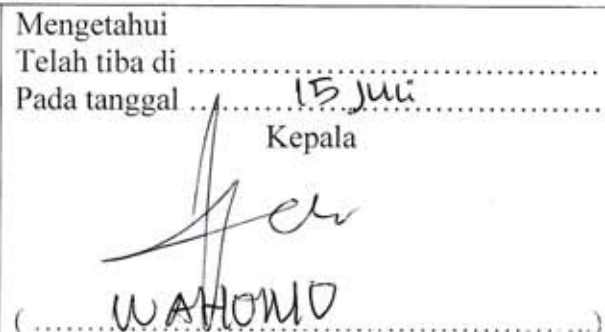 Mengetahui
Telah tiba di ..............................................
Pada tanggal .... 15 Juli ..............................
Kepala
( ..... WAHONO ..... )